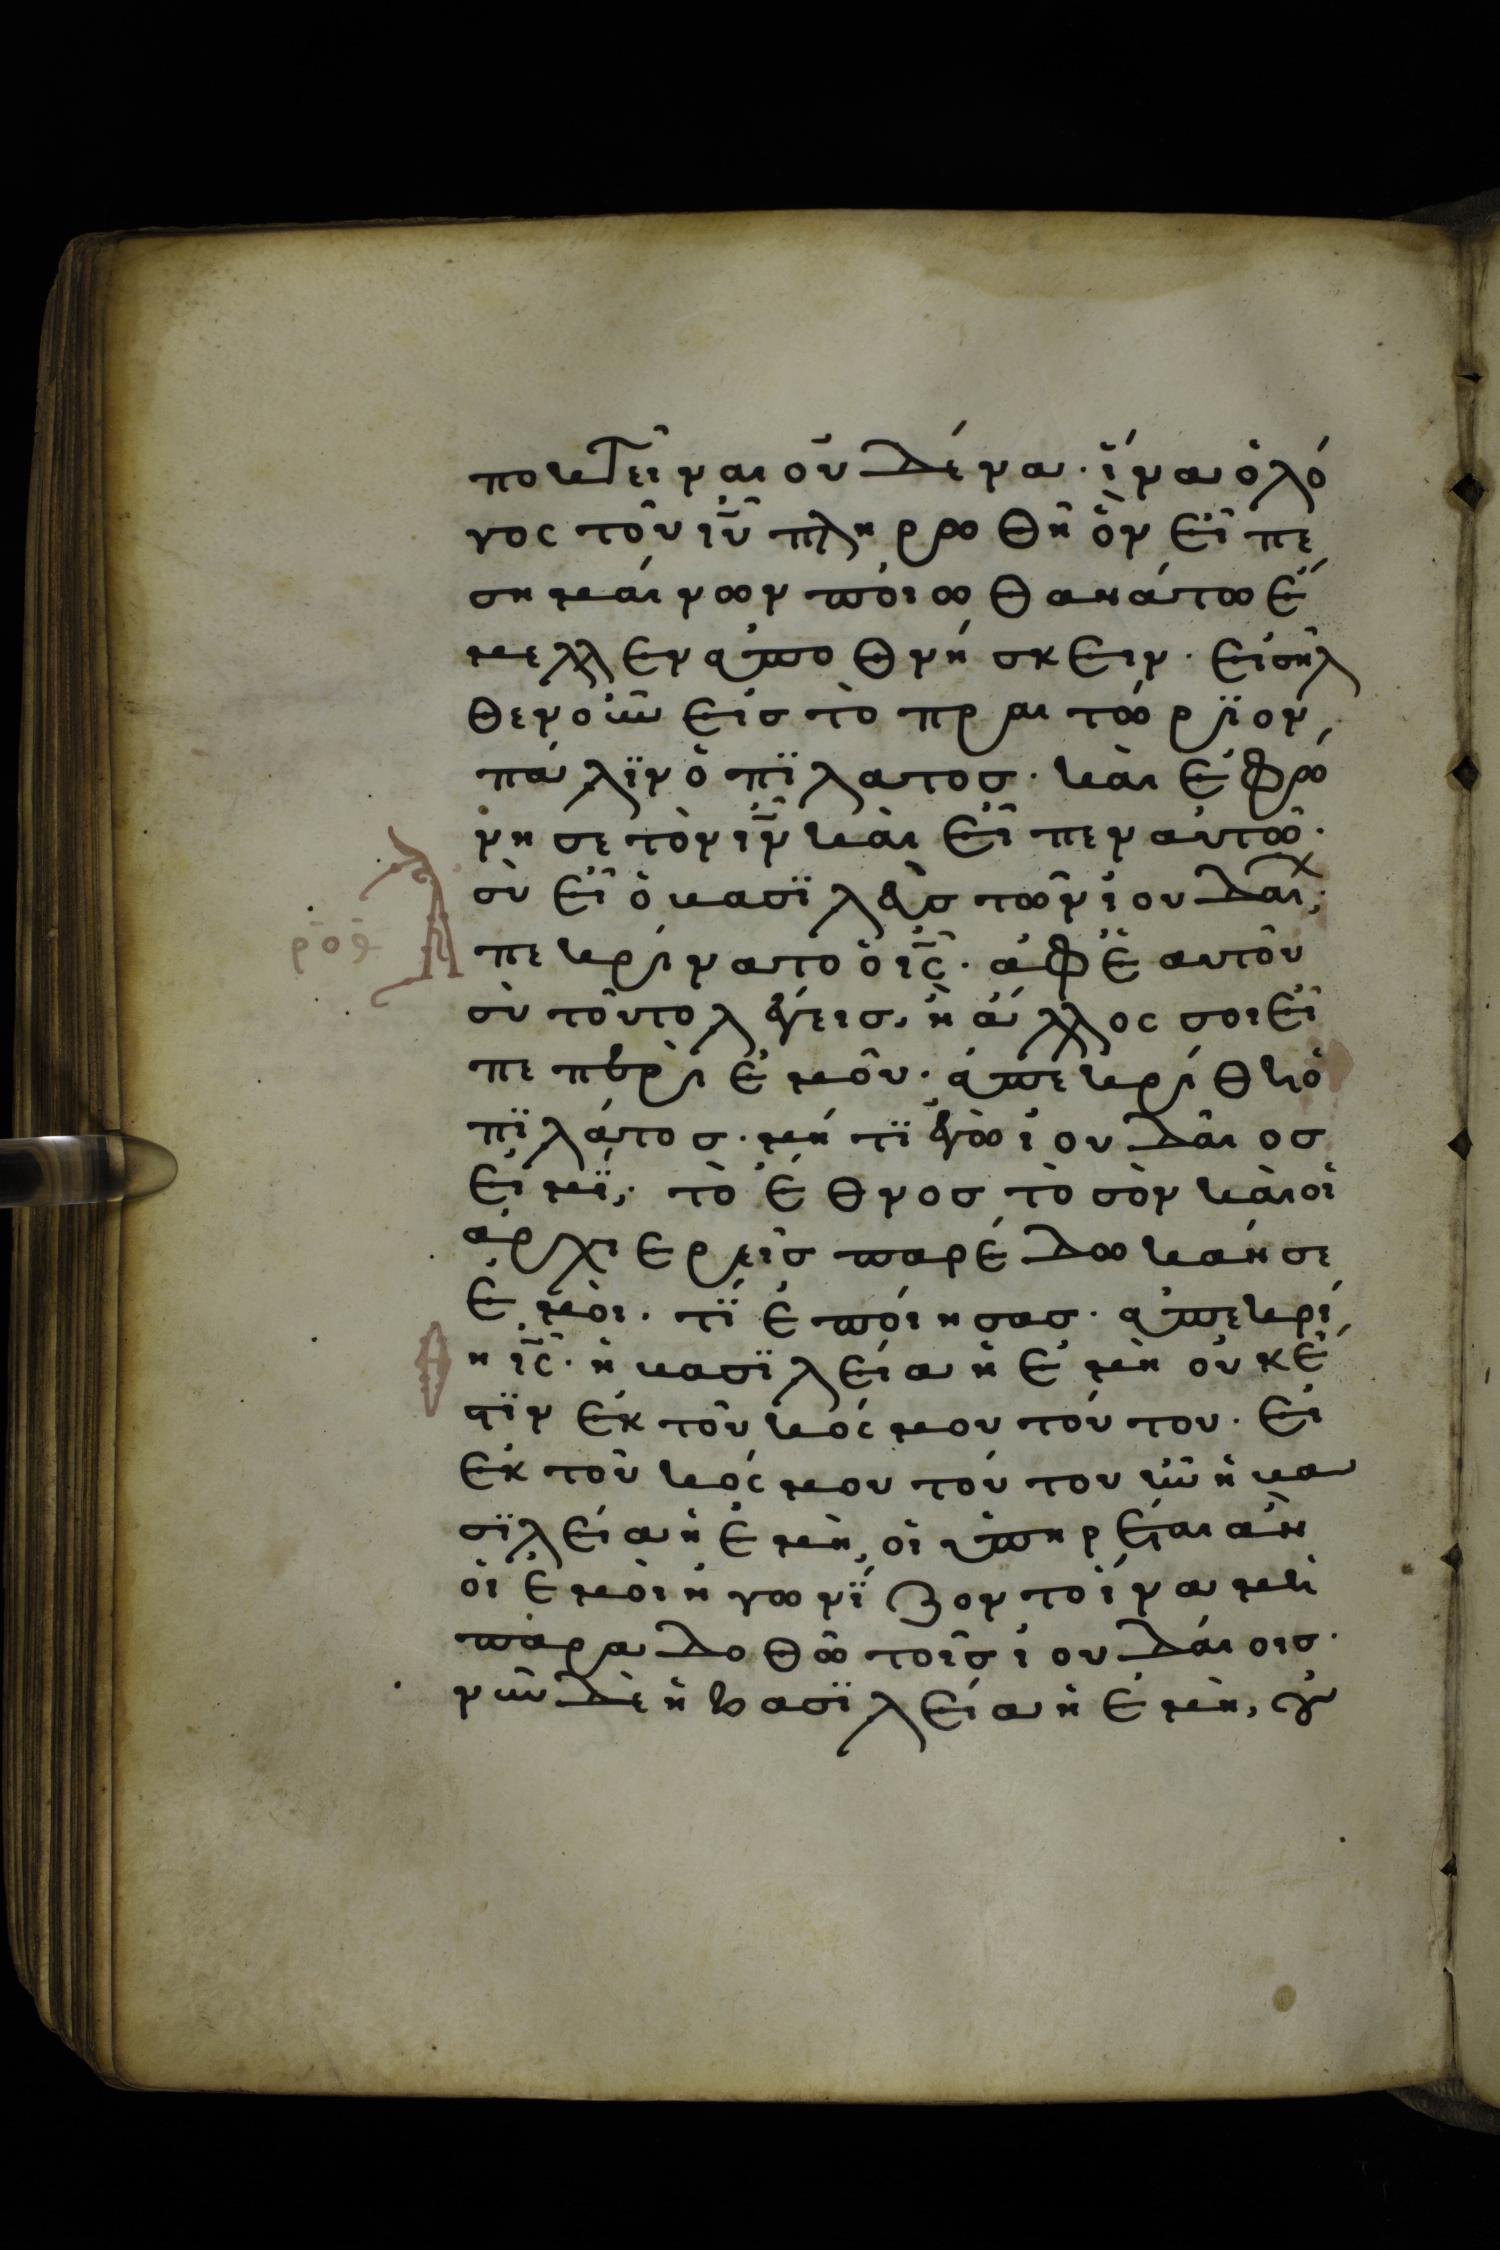 ποκτεῖναι οὐδένα· ἵνα ὁ λό
γος τοῦ ιῦ πληρωθῆ ὃν εἶπε
σημαίνων ποίω θανάτω ἔ
μελλεν ἀποθνήσκειν· εἰσῆλ
θεν οὖν εἰς τὸ πραιτώριον,
πάλϊν ὁ πϊλατος· καὶ ἐφώ
νησε τὸν ιν καὶ εἶπεν αὐτῶ·
σὺ εἶ ὁ βασϊλεὺς τῶν ἰουδαι;
Ἀπεκρίνατο ὁ ις· ἀφ' ἑαυτοῦ
ροθ
σὺ τοῦτο λέγεις, ἢ ἄλλος σοι εἶ
πε περὶ ἐμοῦ· ἀπεκρίθη ὁ
πϊλάτος· μή τϊ ἐγὼ ἰουδαῖος
εἰμϊ; τὸ ἔθνος τὸ σὸν καὶ οἱ
ἀρχιερεῖς παρέδωκάν σε
ἐμοί· τϊ ἐποίησας· ἀπεκρί
Θη ις· ἡ βασϊλεία ἡ ἐμὴ οὐκ ἔ
στϊν ἐκ τοῦ κόσμου τούτου· εἰ
ἐκ τοῦ κόσμου τούτου ἦν ἡ βα
σϊλεία ἡ ἐμὴ, οἱ ὑπηρέται ἂν
οἱ ἐμοὶ ἠγωνϊζοντο ἵνα μὴ
παραδοθῶ τοῖς ἰουδαίοις·
νῦν δὲ ἡ βασϊλεία ἡ ἐμὴ, οὐ